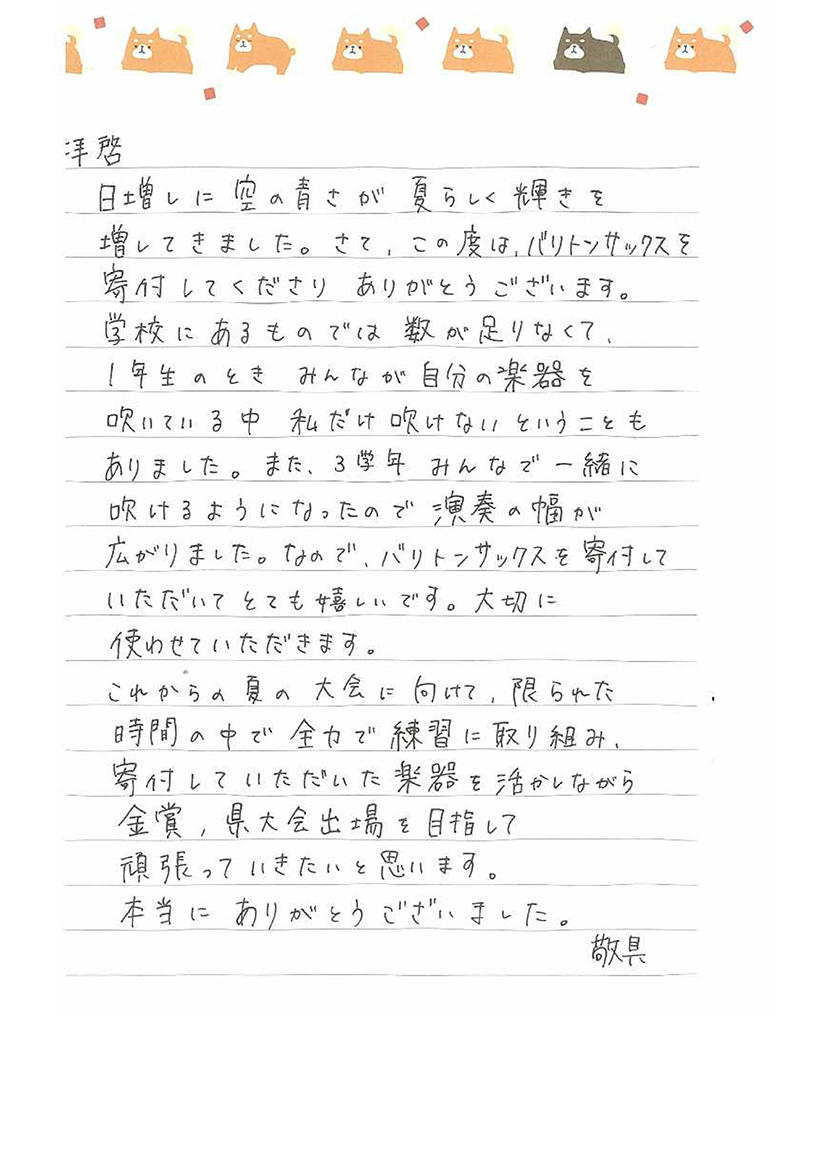 拝啓
日増しに 空の青さが 夏らしく 輝きを
増してきました。さて、この度は、バリトンサックスを
寄付してくださり ありがとうございます。
学校にあるものでは 数が足りなくて、
1年生のとき みんなが自分の楽器を
吹いている中 私だけ吹けないということも
ありました。また、3学年 みんなで一緒に
吹けるようになったので 演奏の幅が
広がりました。なので、バリトンサックスを寄付して
いただいてとても嬉しいです。大切に
使わせていただきます。
これからの夏の大会に向けて、限られた
時間の中で全力で練習に取り組み、
寄付していただいた楽器を活かしながら
金賞、県大会出場を目指して
頑張っていきたいと思います。
本当に ありがとうございました。
敬具